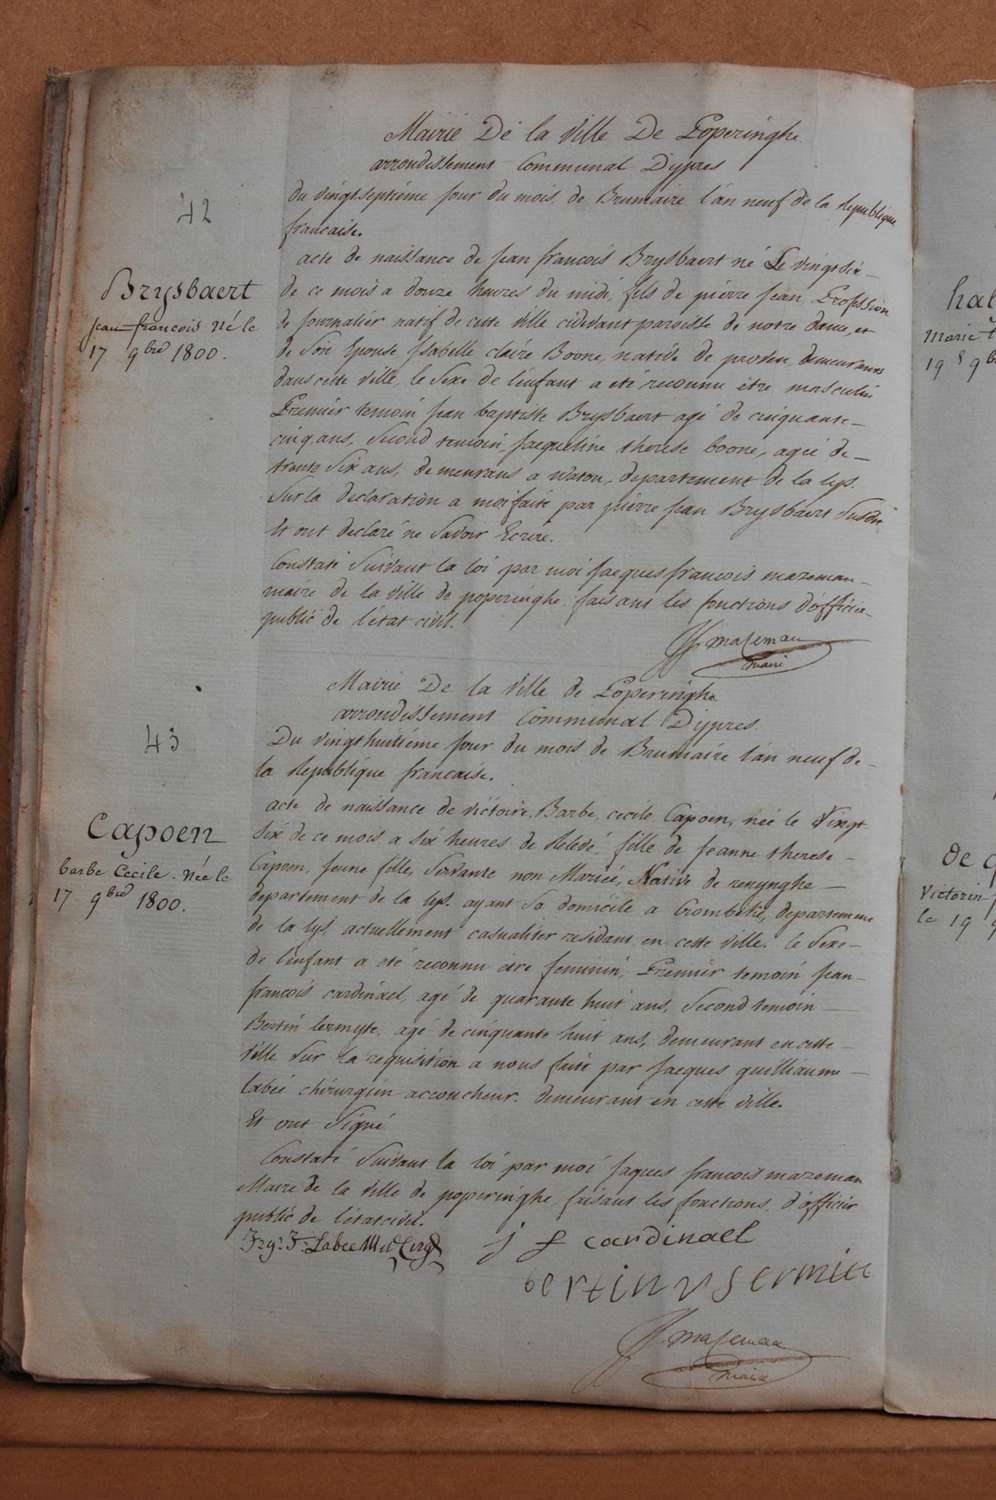 Mairie De la Ville De Poperinghe
arrondissement Communal Dypres
42
du vingtseptiéme jour du mois de Brumaire l'an neuf de la Republique
francaise.
acte de naissance de jean francois Brysbaert né Le vingtsix
Brysbaert
de ce mois a douze heures du midi, fils de pierre jean, Profession
jean francois Né le
de journalier natif de cette ville cidevant paroisse de notre dame, et
17 9bre 1800.
de son Epouse Isabelle claire Boone, native de proven, demeurans
dans cette ville, le Sexe de l'enfant a eté reconnu être masculin
Premier temoin jean baptiste Brysbaert agé de cinquante-
cinq ans, Second temoin Jacqueline therese boone, agée de-
trente Six ans, demeurans a Waton, departement de la lys.
Sur la declaration a moi faite par pierre jean Brysbaert Susdit
Et ont declaré ne Savoir Ecrire.
Constaté Suivant la loi par moi Jacques francois mazeman
maire de la ville de poperinghe faisant les fonctions d'officier
public de l'état civil.
JJ. mazeman
maire
Mairie De la Ville de Poperinghe
arrondissement Communal Dypres.
43
Du vingthuitiéme jour du mois de Brumaire l'an neuf de-
la Republique francaise.
acte de naissance de victoire, Barbe, cecile Capoen, née le Vingt
Capoen
Six de ce mois a six heures de relevé, fille de jeanne therese-
barbe Cecile. Née le
Capoen, jeune fille, Servante non Mariée, Native de renynghe
17 9bre 1800.
departement de la lys. ayant sa domicile a Crombeke, departement
de la lys actuellement casualiter residant en cette ville. le Sexe-
de l'enfant a eté reconnu être feminin, Premier temoin jean-
francois cardinael, agé de quarante huit ans, Second temoin
Bertin lermyte, agé de cinquante huit ans, demeurant en cette-
ville Sur la requisition a nous faite par Jacques guilliaume
labée chirurgien accoucheur. demeurant en cette ville.
Et ont Signé
Constaté Suivant la loi par moi jaques francois mazeman
Maire de la Ville de poperinghe faisant les fonctions, d'officier
public de l'état civil.
j f cardinael
JJ. mazeman
maire
hal
Marie
19 9b
de
Victorin
le 19